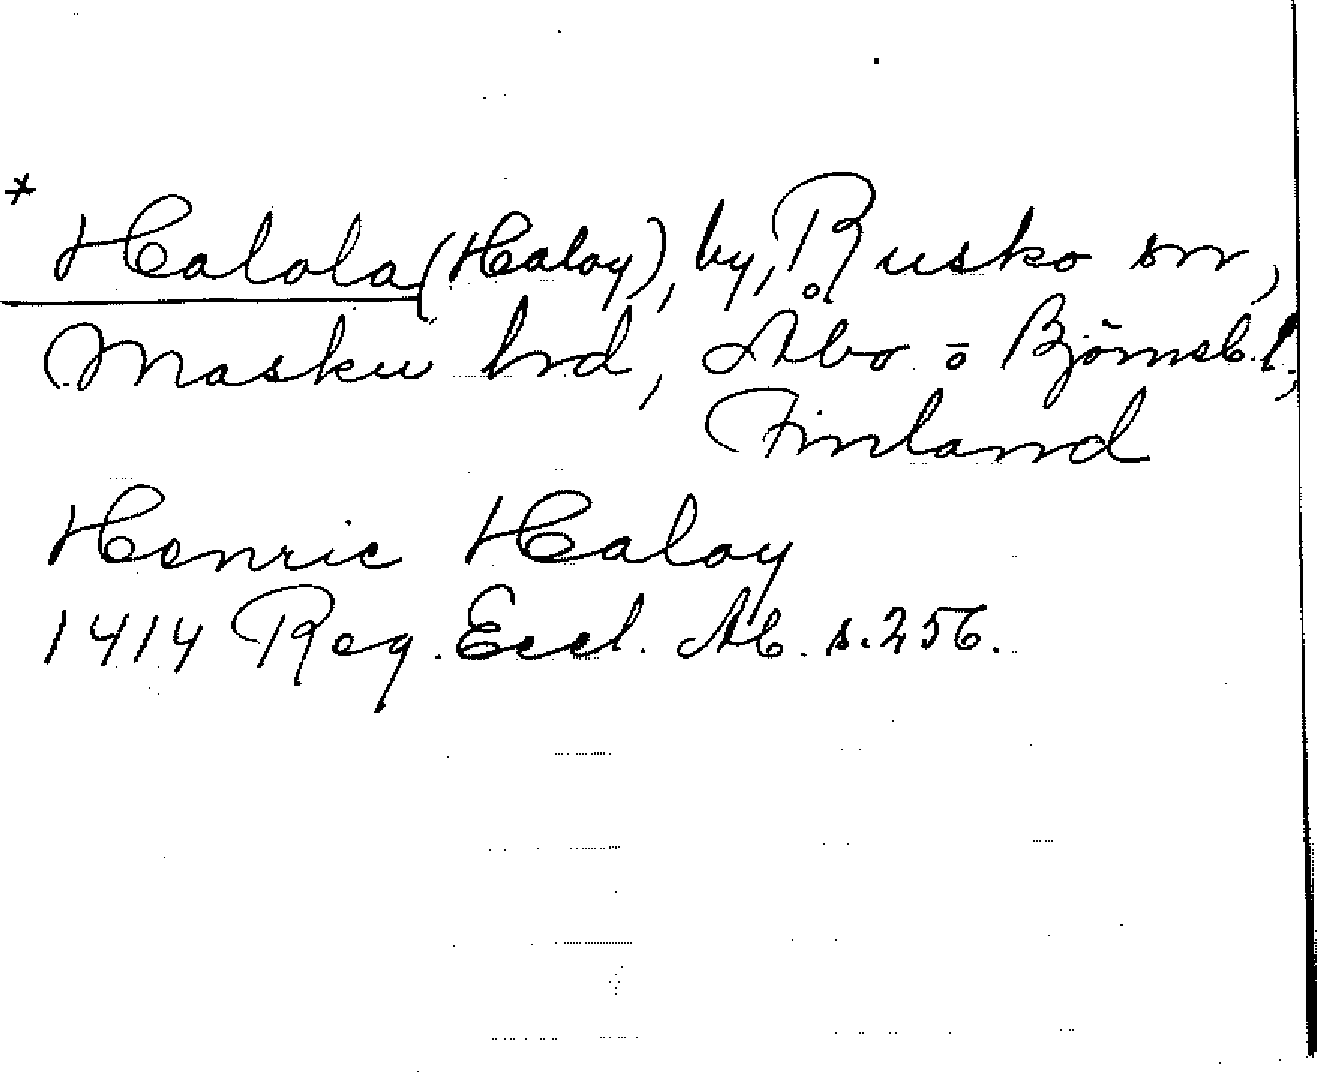 * Halola (Haloy), by, Rusko sn,
Masku hrd, Åbo o Björneb. l,
Finland
Henric Haloy
1414 Reg. Eccl. Ab. s. 256.